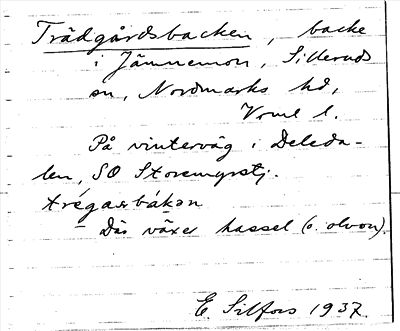 Trädgårdsbacken, backe
i Jämnemon, Silleruds
sn, Nordmarks hd,
Vrml l.
På vinterväg i Deleda-
len, SO Storemyrstj.
trégaʂbákən
Där växer hassel (o. olvon).
E. Silfors 1937.